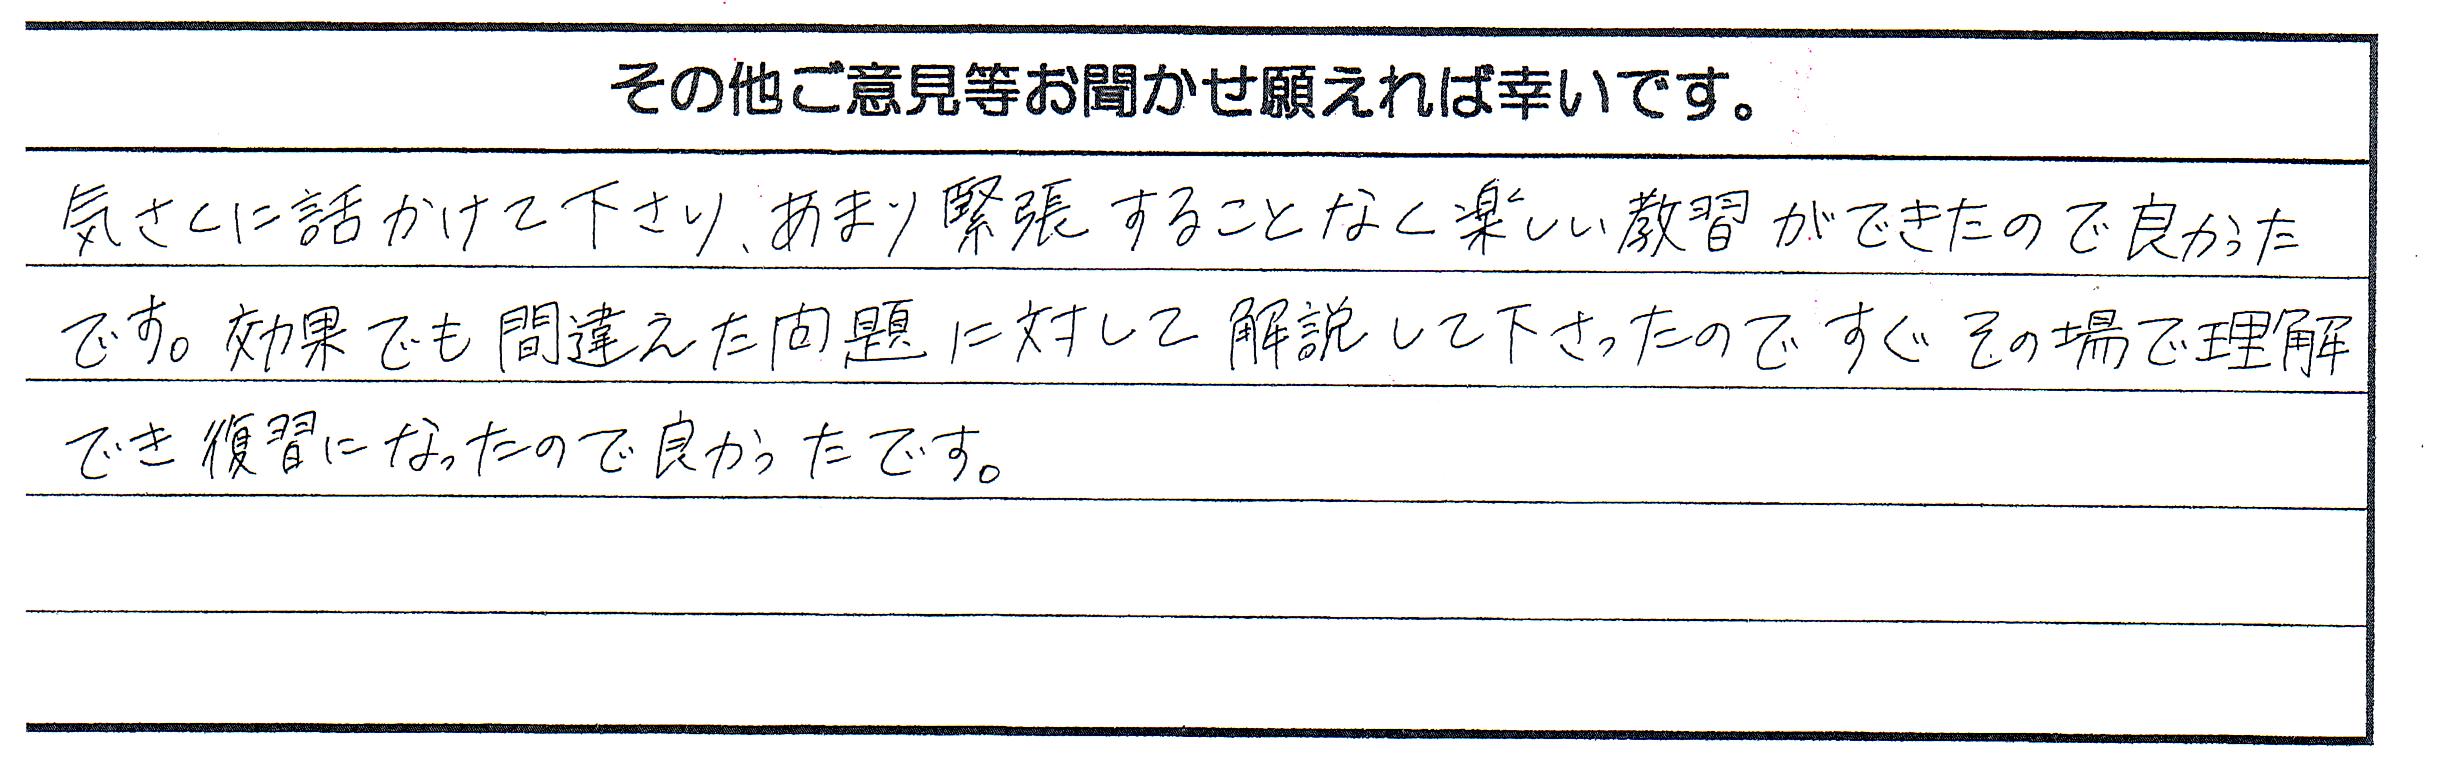 その他ご意見等お聞かせ願えれば幸いです。
気さくに話かけて下さり、あまり緊張することなく楽しい教習ができたので良かった
です。効果でも間違えた問題に対して解説して下さったのですぐその場で理解
でき復習になったので良かったです。